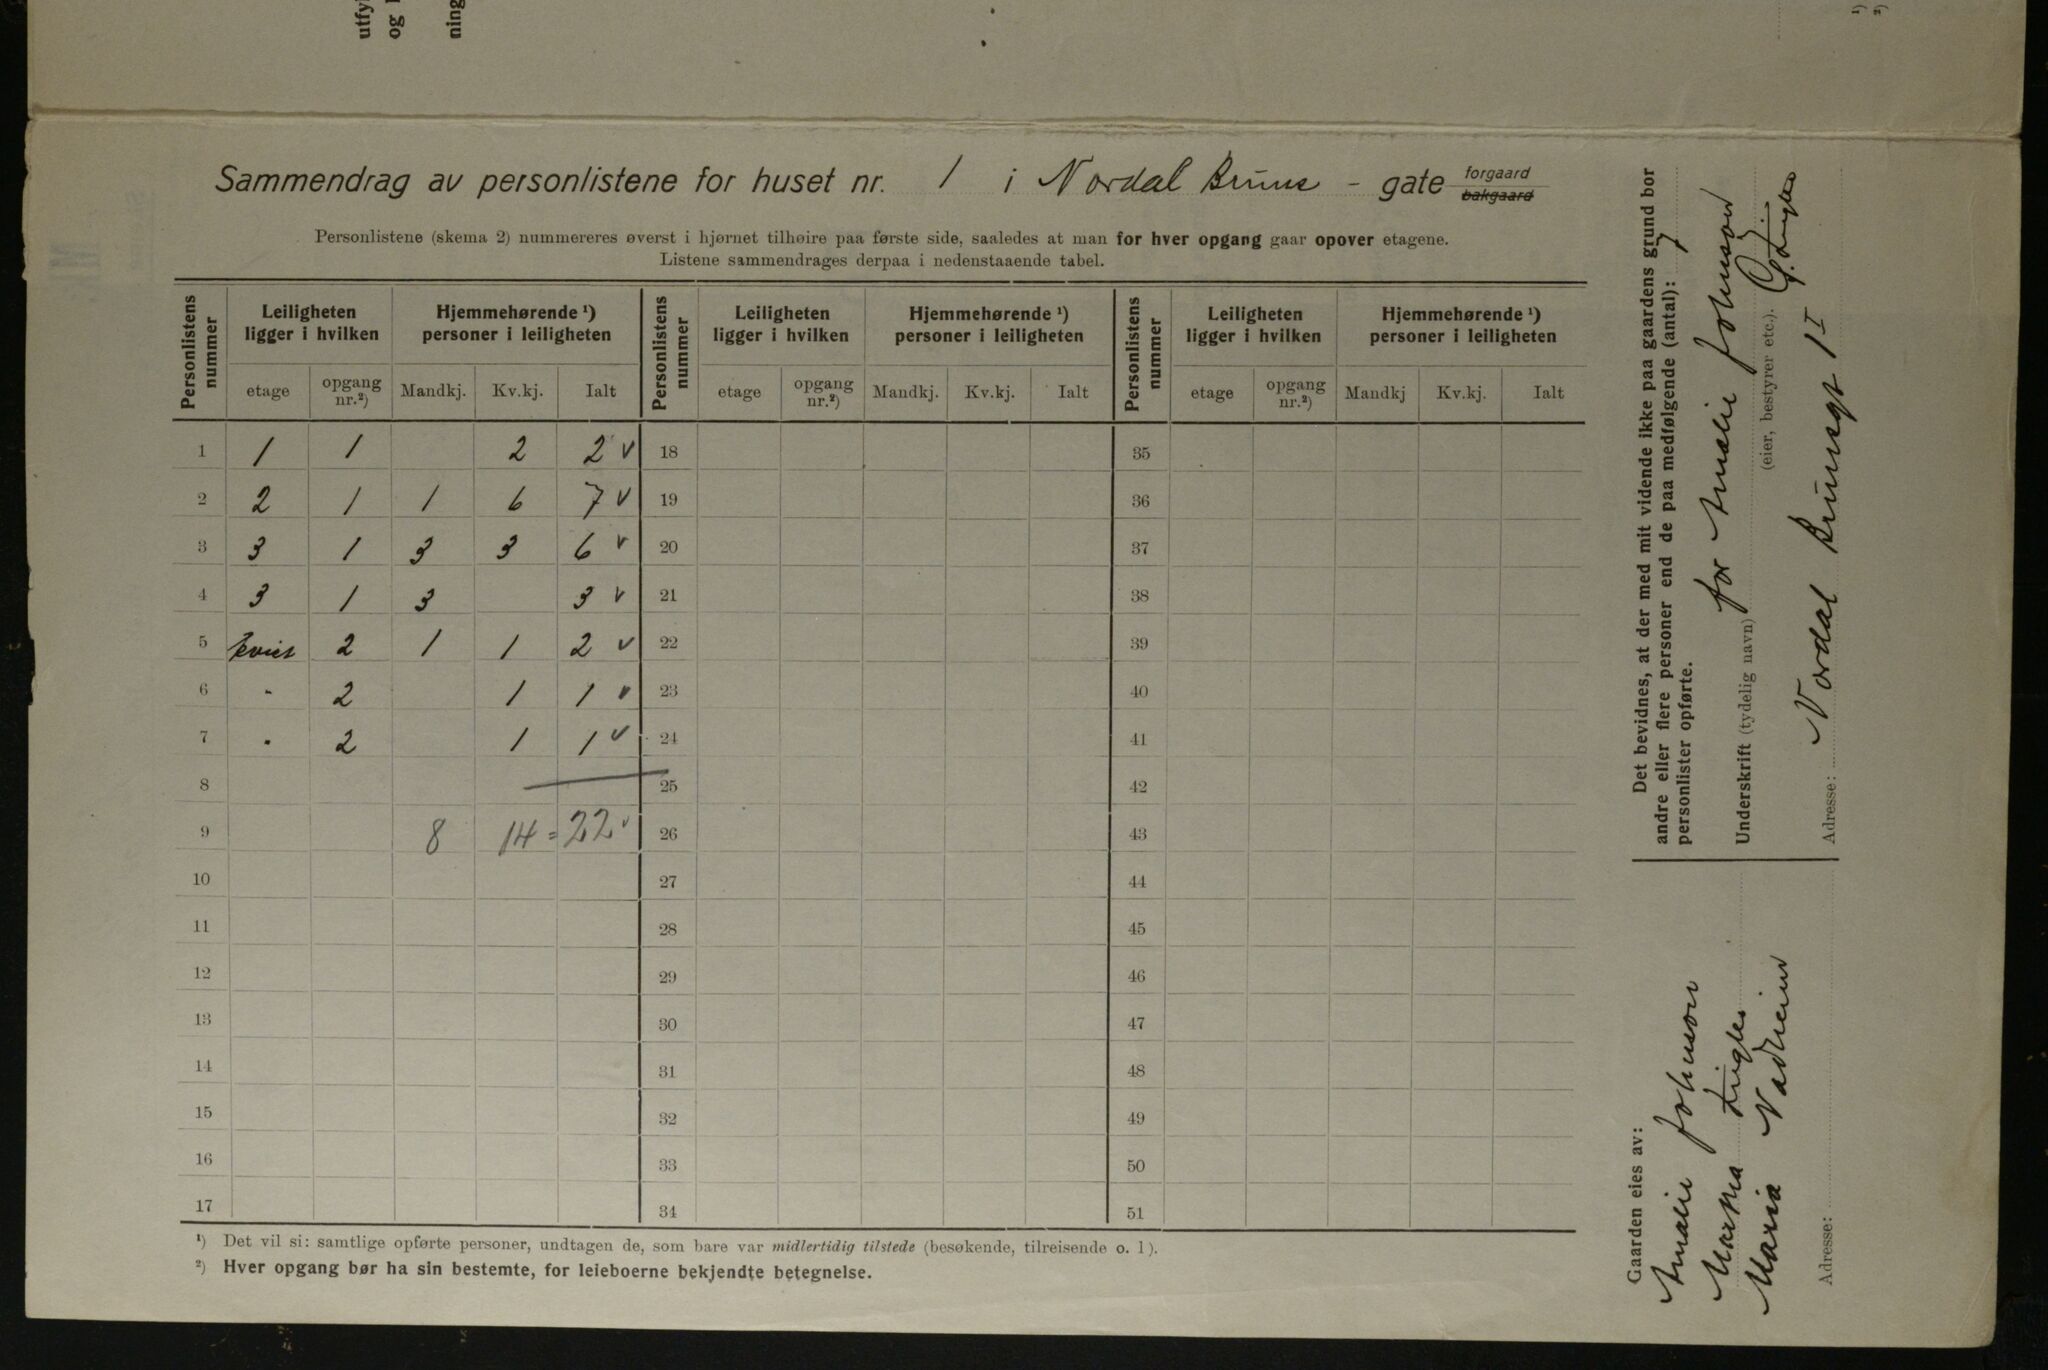 utfyl
og
ning
¹)
²)
Sammendrag av personlistene for huset nr. 1 i Nordal Bruns - gate forgaard bakgaard
Personlistene (skema 2) nummereres øverst i hjørnet tilhøire paa første side, saaledes at man for hver opgang gaar opover etagene.
Listene sammendrages derpaa i nedenstaaende tabel.
Personlistens nummer | Leiligheten ligger i hvilken | Hjemmehørende ¹) personer i leiligheten | Personlistens nummer | Leiligheten ligger i hvilken | Hjemmehørende ¹) personer i leiligheten | Personlistens nummer | Leiligheten ligger i hvilken | Hjemmehørende ¹) personer i leiligheten
etage | opgang nr.²) | Mandkj. | Kv.kj. | Ialt | etage | opgang nr.²) | Mandkj. | Kv.kj. | Ialt | etage | opgang nr.²) | Mandkj | Kv.kj. | Ialt
1 1 1 2 2 v 18 35
2 2 1 1 6 7 v 19 36
3 3 1 3 3 6 v 20 37
4 3 1 3 3 v 21 38
5 kvist 2 1 1 2 v 22 39
6 - 2 1 1 v 23 40
7 - 2 1 1 v 24 41
8 25 42
9 8 14 = 22 v 26 43
10 27 44
11 28 45
12 29 46
13 30 47
14 31 48
15 32 49
16 33 50
17 34 51
¹) Det vil si: samtlige opførte personer, undtagen de, som bare var midlertidig tilstede (besøkende, tilreisende o. l).
²) Hver opgang bør ha sin bestemte, for leieboerne bekjendte betegnelse.
Det bevidnes, at der med mit vidende ikke paa gaardens grund bor
andre eller flere personer end de paa medfølgende (antal): 7
personlister opførte.
for Amalie Johnson
Underskrift (tydelig navn)
(eier, bestyrer etc.).
Adresse: Nordal Brunsgt 1 I
Gaarden eies av:
Amalie Johnson
Martha
Maria
Adresse: